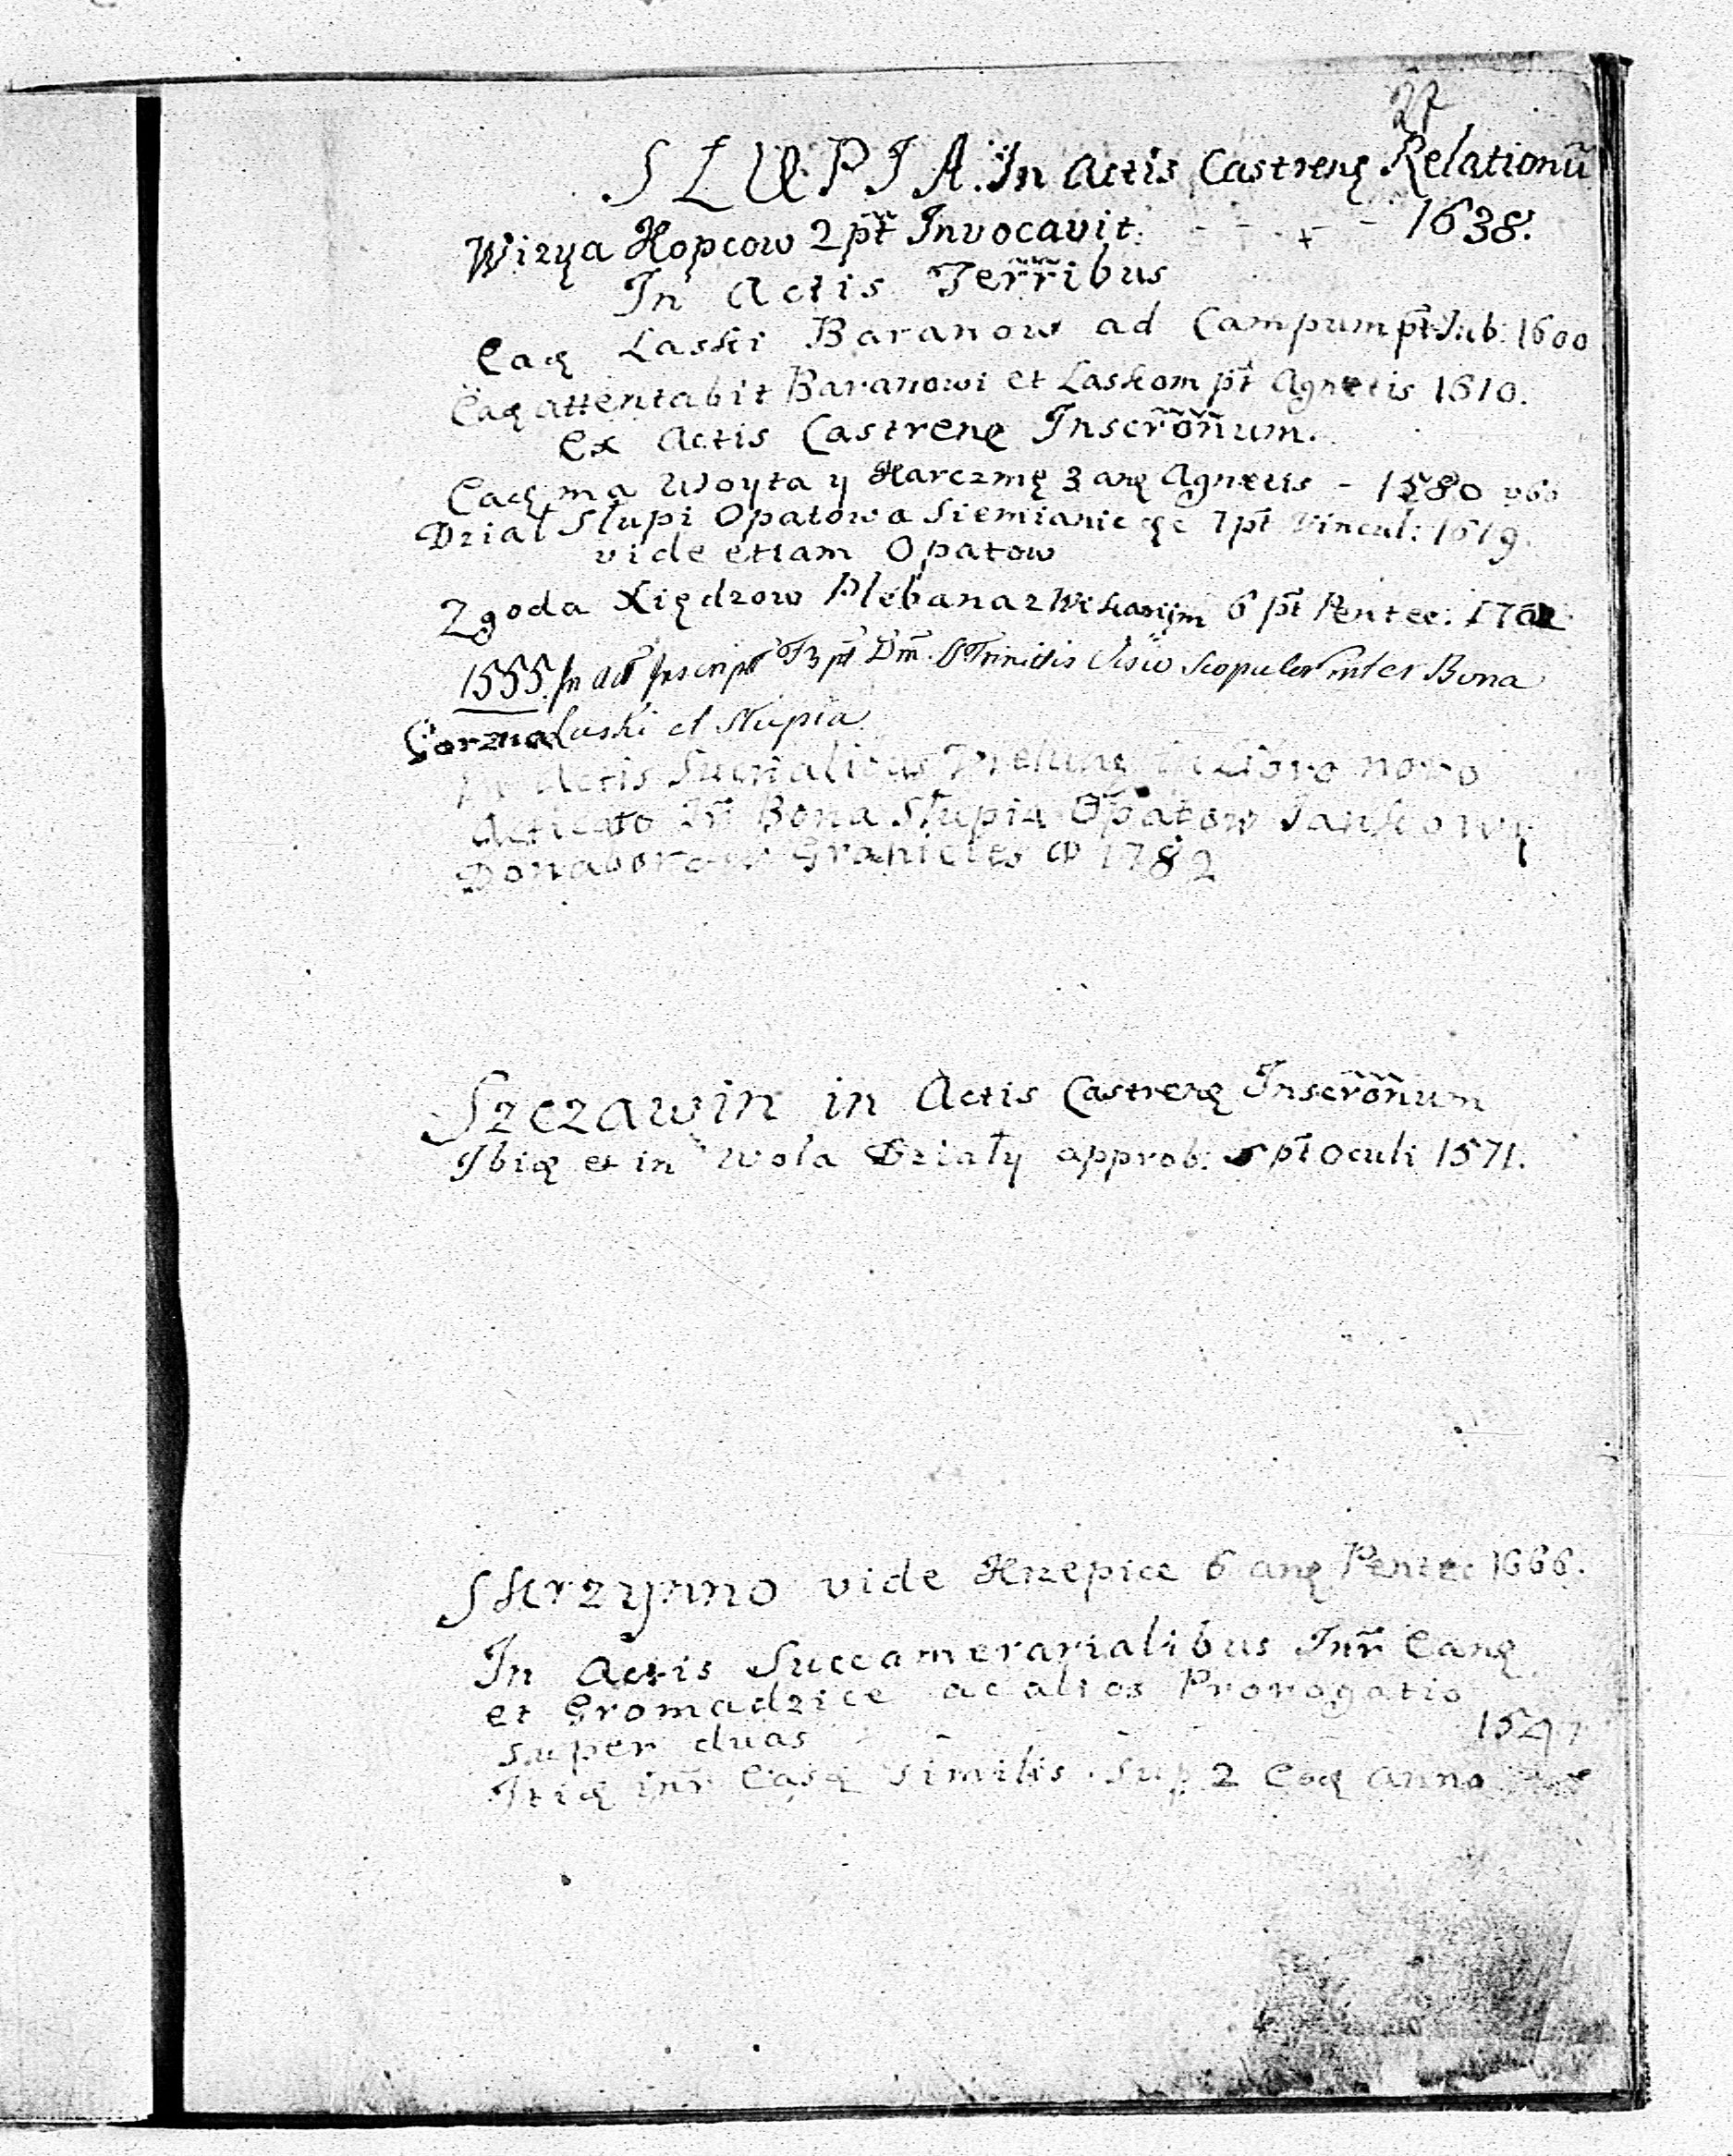 27
SŁUPIA. In Actis Castrenę Relationū
Wizya Kopcow 2 pt̃ Invocavit. - - - - 1638.
In Actis Ter̃r̃ibus
Eaą Laski Baranow ad Campum pt̃ Jub: 1600
Eaą attentabit Baranowi et Laskom pt̃ Agnetis 1610.
Ex Actis Castrenę Inscr̃õñum.
Eaą ma Woyta y Karczmę 3 anę Agnetis - 1580
Dział Słupi Opatowa Siemianic ęc 7 pt̃ Vincul: 1619.
vide etiam Opatow
Zgoda Xiędzow Plebana z Wikaryim 6 pt̃ Pentec: 1702
1555. In act Inscript pt Dm̃. Trinitis Visio Scopulor inter Bona
Laski et Słupia
Actis in Libro novo
Acticato Int̃ Bona Słupia Opatow Jankowy
Granicies 1782
Szczawin in Actis Castrenę Inscr̃õñum
Ibią et in Wola Działy approb: 5 pt̃ Oculi 1571.
Skrzynno vide Krzepice 6 anę Pentec 1666.
In Actis Succamerarialibus Int̃r Eanę
et Gromadzice ac alios Prorogatio
super duas - - - - 1547
Itią int̃r Easą similis Sup 2 Eoą anno